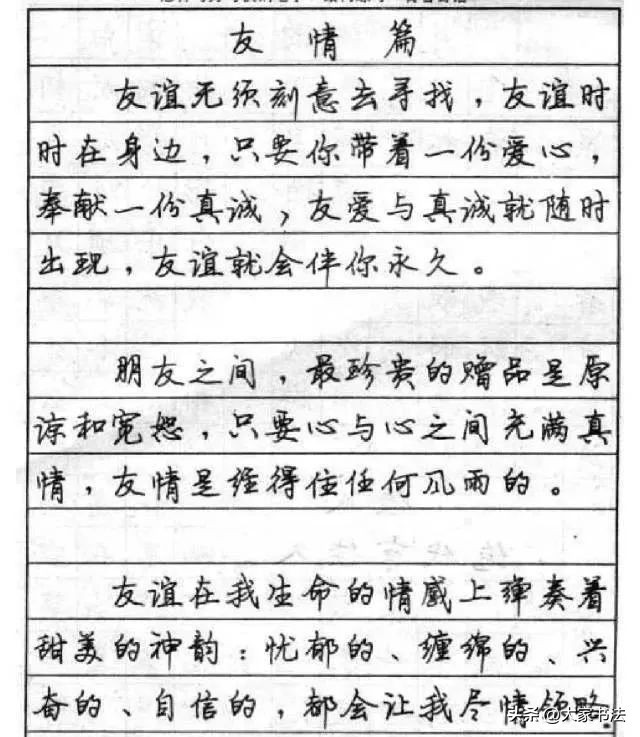 友情篇
友谊无须刻意去寻找，友谊时
时在身边，只要你带着一份爱心，
奉献一份真诚，友爱与真诚就随时
出现，友谊就会伴你永久。
朋友之间，最珍贵的赠品是原
谅和宽恕，只要心与心之间充满真
情，友情是经得住任何风雨的。
友谊在我生命的情感上弹奏着
甜美的神韵：忧郁的、缠绵的、兴
奋的、自信的，都会让我尽情领略
头条@大家书法